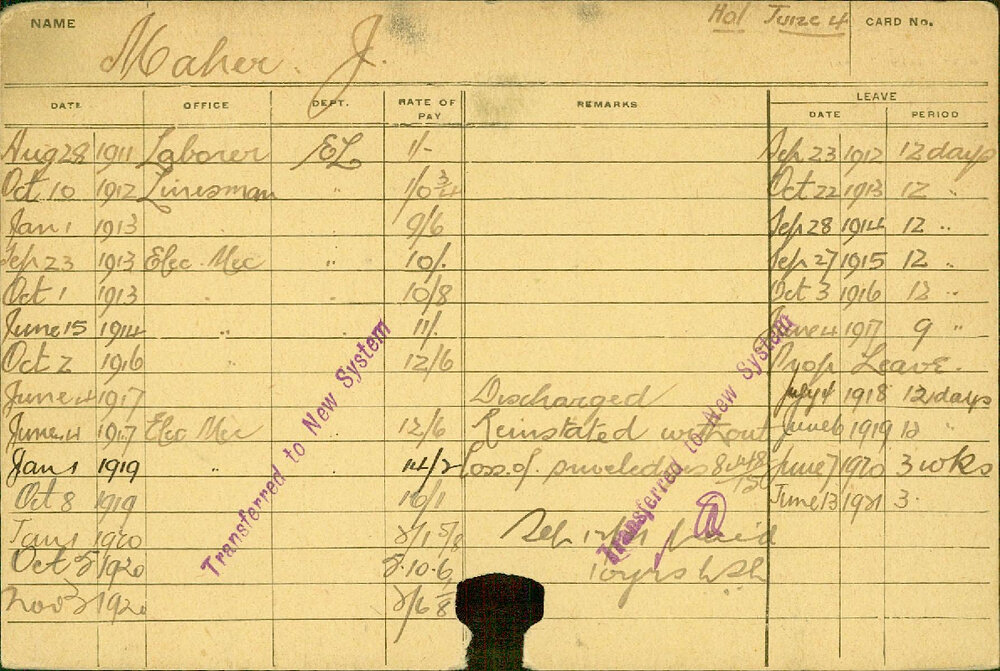 NAME
Maher. J.
Hol June 4
CARD No.
DATE OFFICE DEPT. RATE OF PAY REMARKS LEAVE
DATE PERIOD
Aug 28 1911 Laborer EL 1/- Sep 23 1912 12 days
Oct 10 1912 Linesman " 1/0 3/4 Oct 22 1913 12 "
Jan 1 1913 9/6 Sep 28 1914 12 "
Sep 23 1913 Elec. Mec " 10/. Sep 27 1915 12 "
Oct 1 1913 10/8 Oct 3 1916 12 "
June 15 1914 " 11/. June 4 1917 9 "
Oct 2 1916 " 12/6 Prop Leave.
June 4 1917 Discharged July 4 1918 12 days
June 11 1917 Elec Mec 12/6 Reinstated without June 6 1919 12 "
Jan 1 1919 " 14/2 loss of priveledges June 7 1920 3 wks
Oct 8 1919 16/1 June 13 1921 3
Jan 1 1920 2/1 5/8 paid
Oct 5 1920 5.10.6 10yrs
Nov 1920 2/6 1/8
Transferred to New System
Transferred to New System